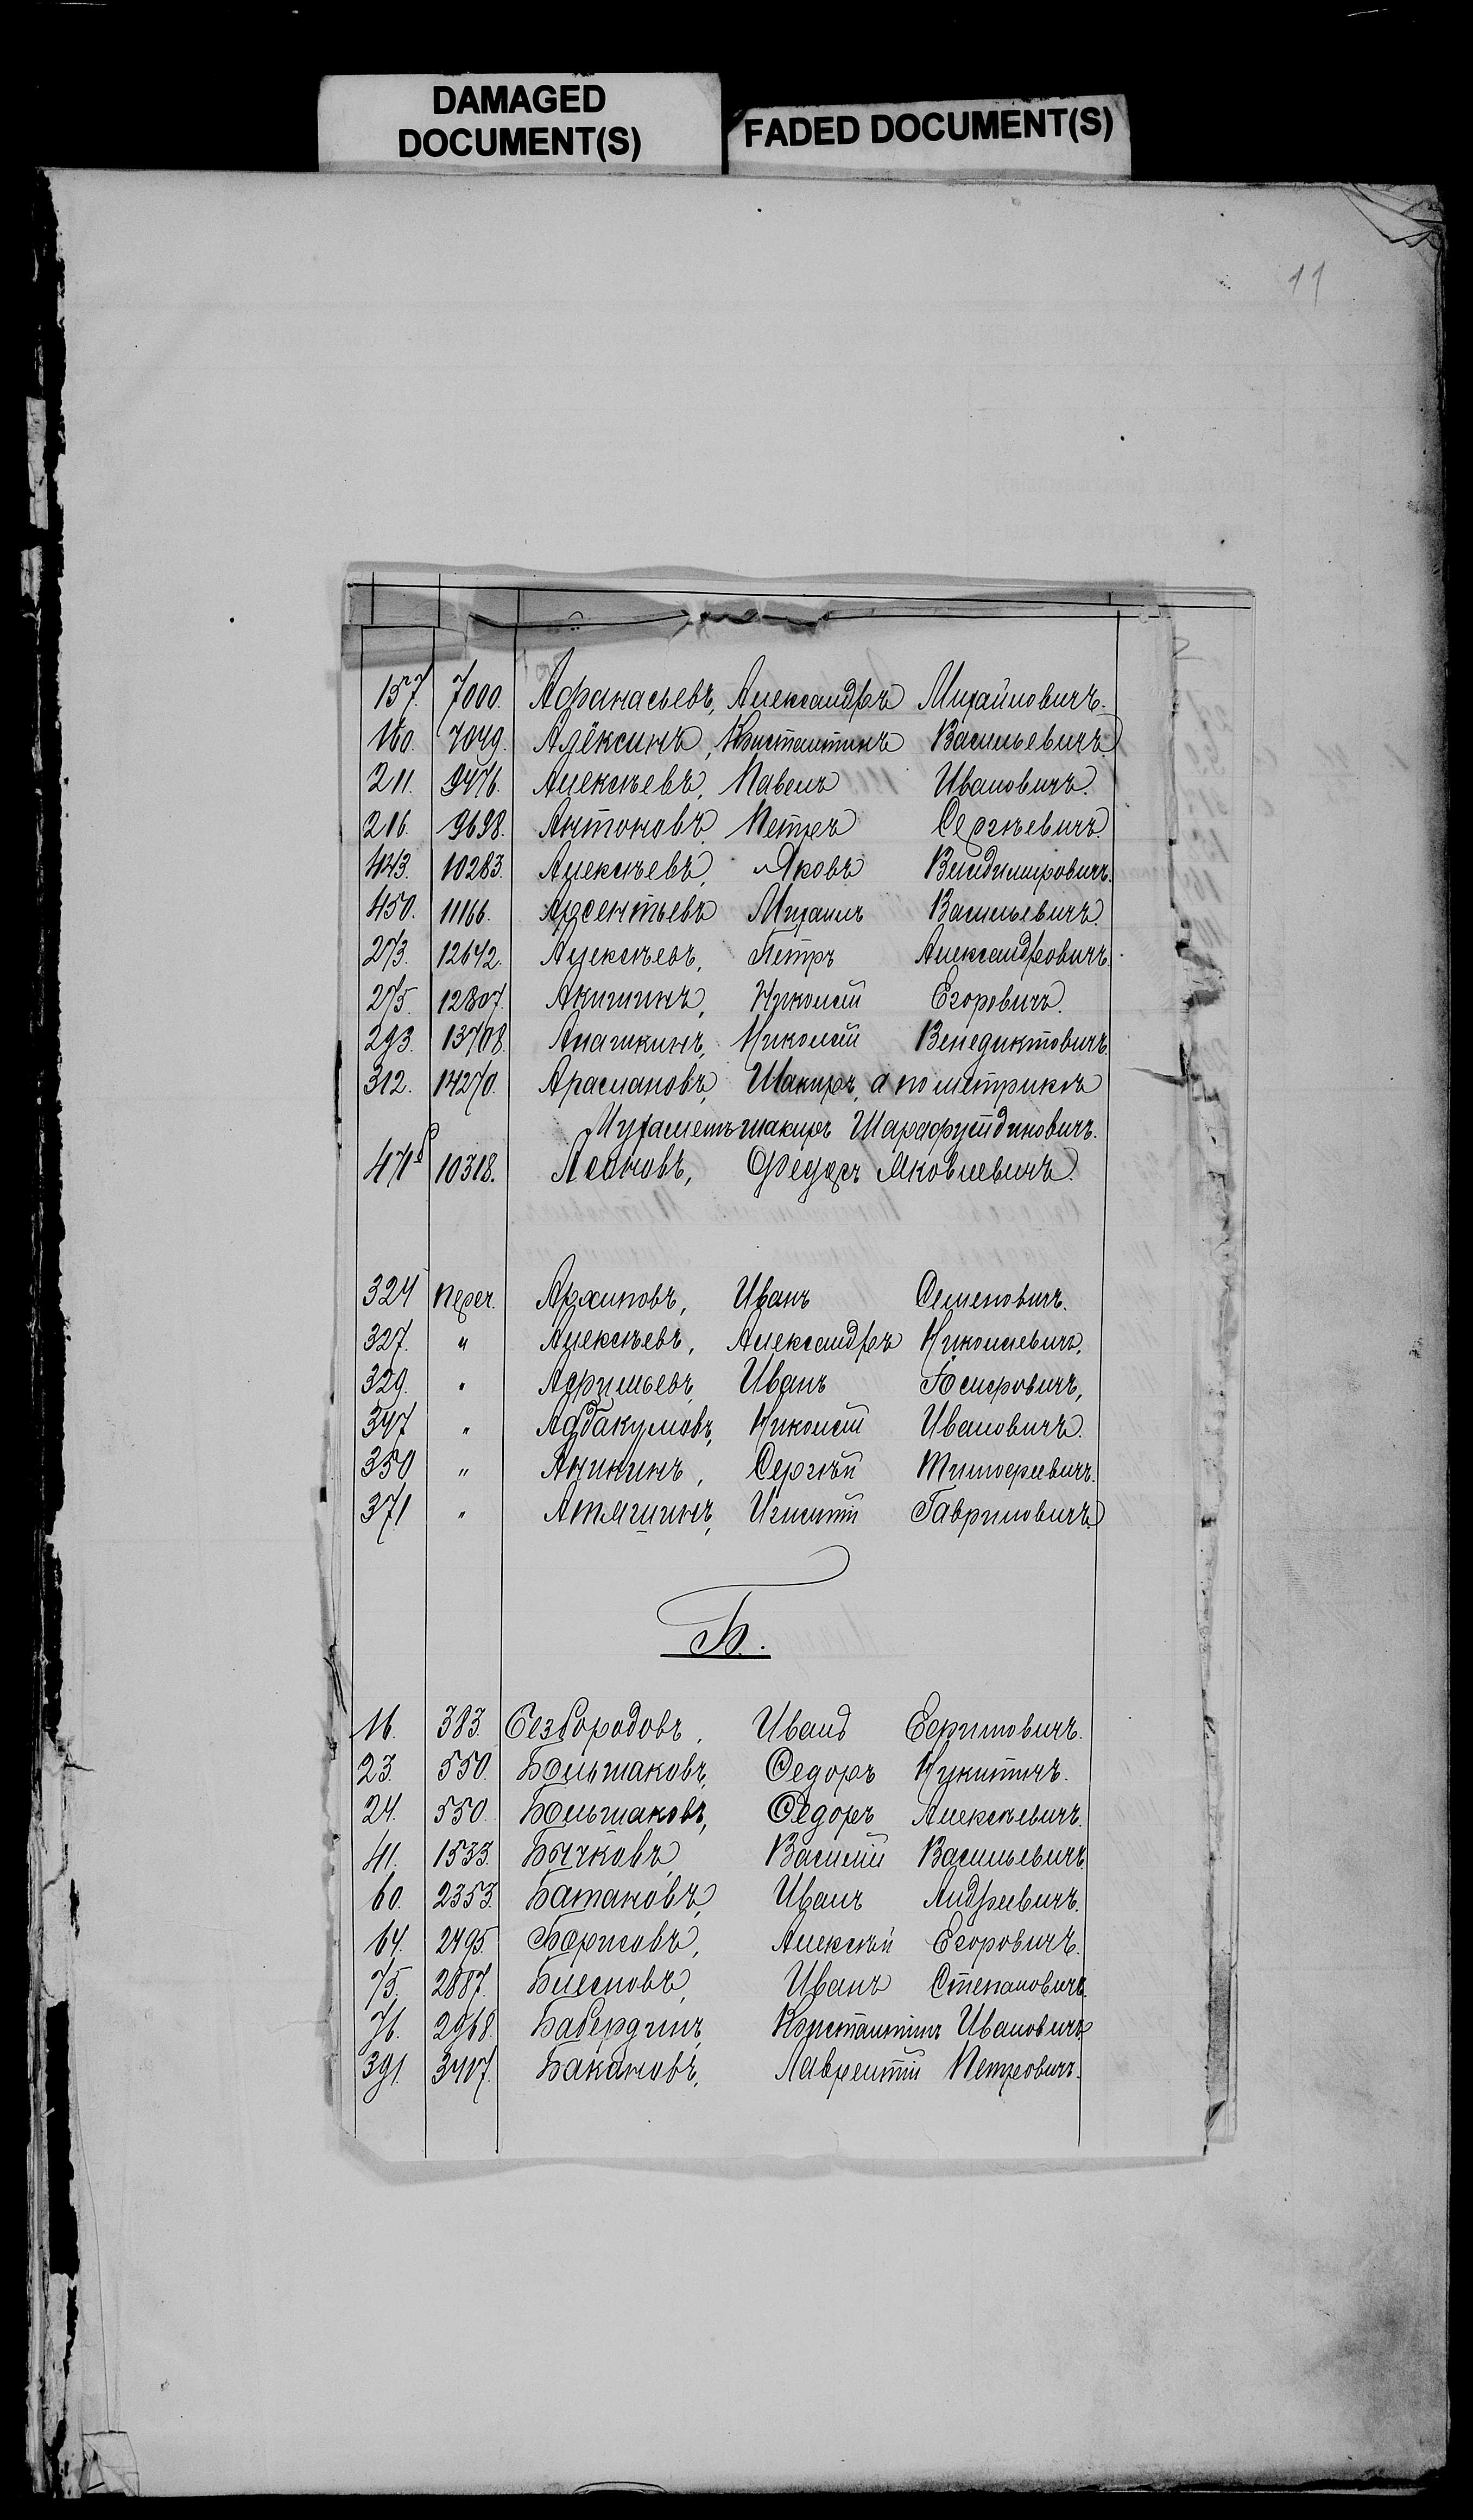 DAMAGED
DOCUMENT(S)
FADED DOCUMENT(S)
11
157. 7000. Афанасьевъ, Александръ Михайловичъ.
160. 7049. Алёксинъ, Константинъ Васильевичъ.
211. 9476. Алексѣевъ, Павелъ Ивановичъ.
216. 9698. Антоновъ, Петръ Сергѣевичъ.
443. 10283. Алексѣевъ, Яковъ Владимировичъ.
450. 11166. Арсентьевъ Михаилъ Васильевичъ.
273. 12642. Алексѣевъ, Петръ Александровичъ.
275. 12807. Акишинъ, Николай Егоровичъ.
293. 13708. Анашкинъ, Николай Венедиктовичъ.
312. 14270. Араслановъ, Шакиръ, а по метрикѣ
Мухаметъшакиръ Шарафутдиновичъ.
471 10318. Асоновъ, Федоръ Яковлевичъ.
324 Переч. Архиповъ, Иванъ Семеновичъ.
327. " Алексѣевъ, Александръ Николаевичъ.
329. " Иванъ Іосифовичъ,
347 " Аввакумовъ, Николай Ивановичъ.
350 " Аникинъ, Сергѣй Тимофеевичъ.
371 " Атяшинъ, Игнатій Гавриловичъ.
Б.
16. 383. Безбородовъ, Иванъ Ефимовичъ.
23. 550. Большаковъ, Федоръ Никитичъ.
24. 550. Большаковъ, Федоръ Алексѣевичъ.
41. 1533. Бычковъ, Василій Васильевичъ
60. 2353. Батаковъ, Иванъ Андреевичъ.
64. 2495. Борисовъ, Алексѣй Егоровичъ.
75. 2887. Блесновъ, Иванъ Степановичъ.
76. 2968. Бабердинъ, Константинъ Ивановичъ
391. 3407. Бакановъ, Лаврентій Петровичъ.